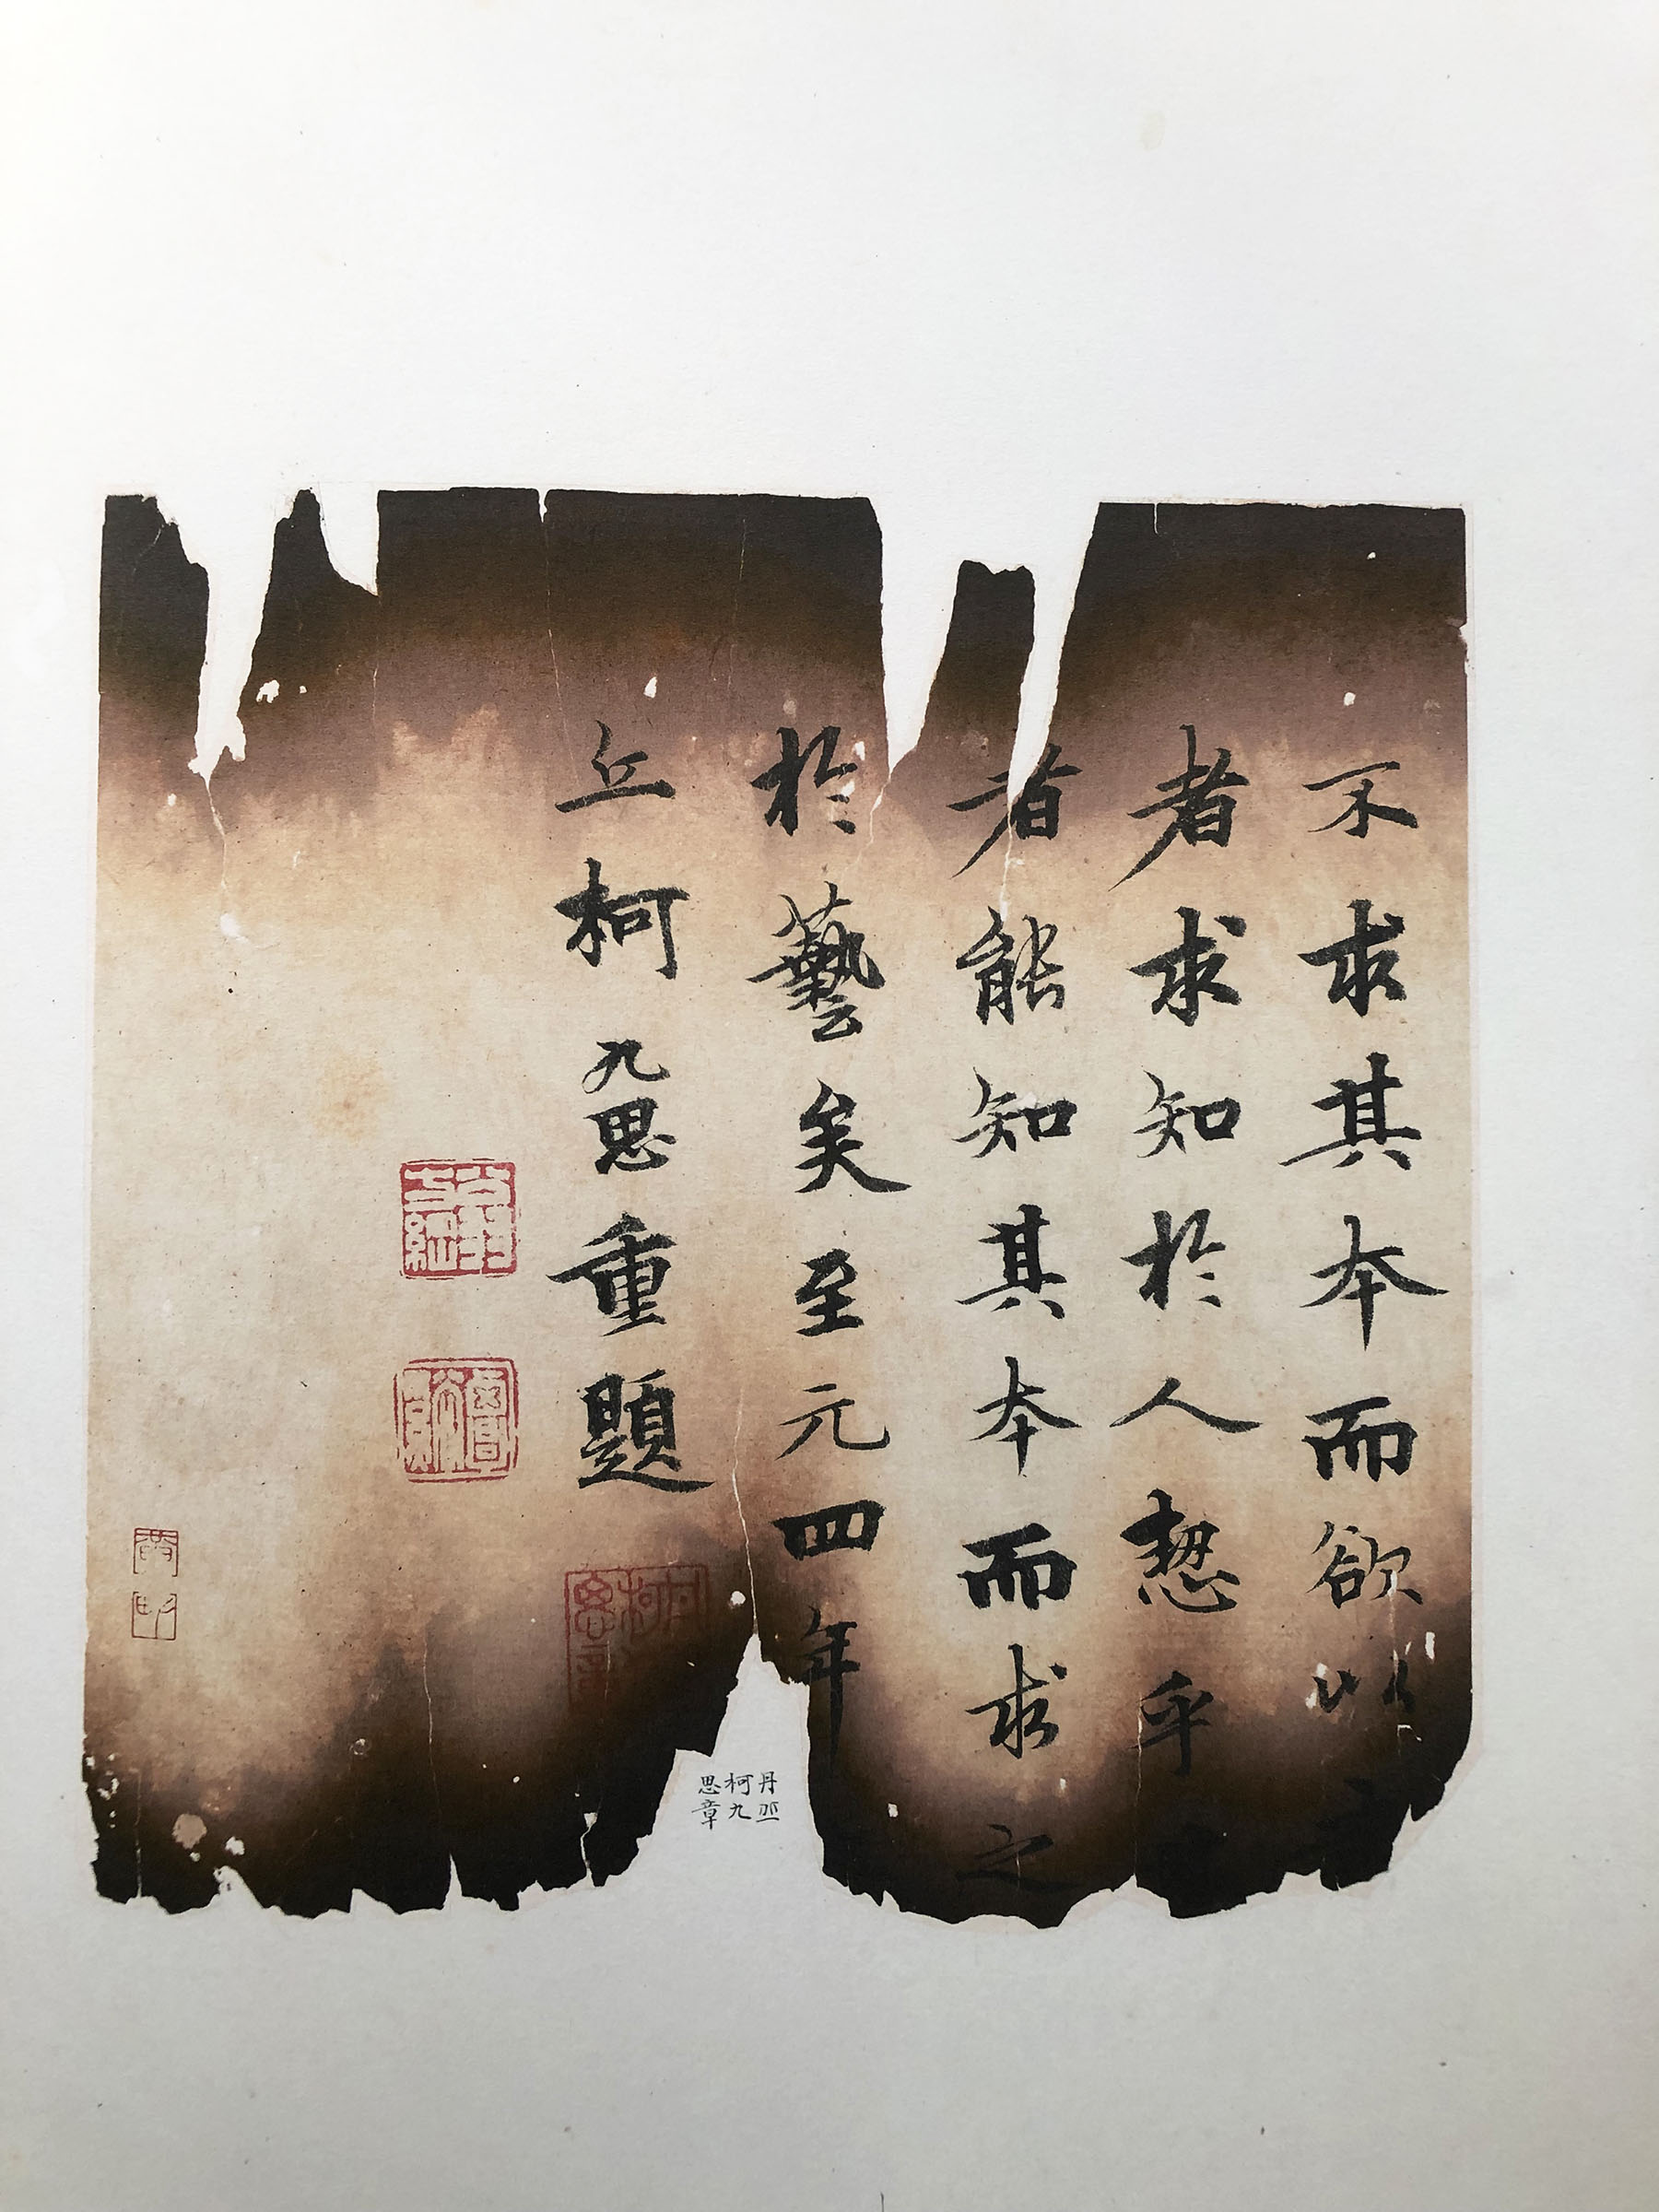 不求其本而欲以
者求知於人愬乎
者能知其本而求之
於藝矣至元四年
丘柯九思重題
丹丘
柯九
思章